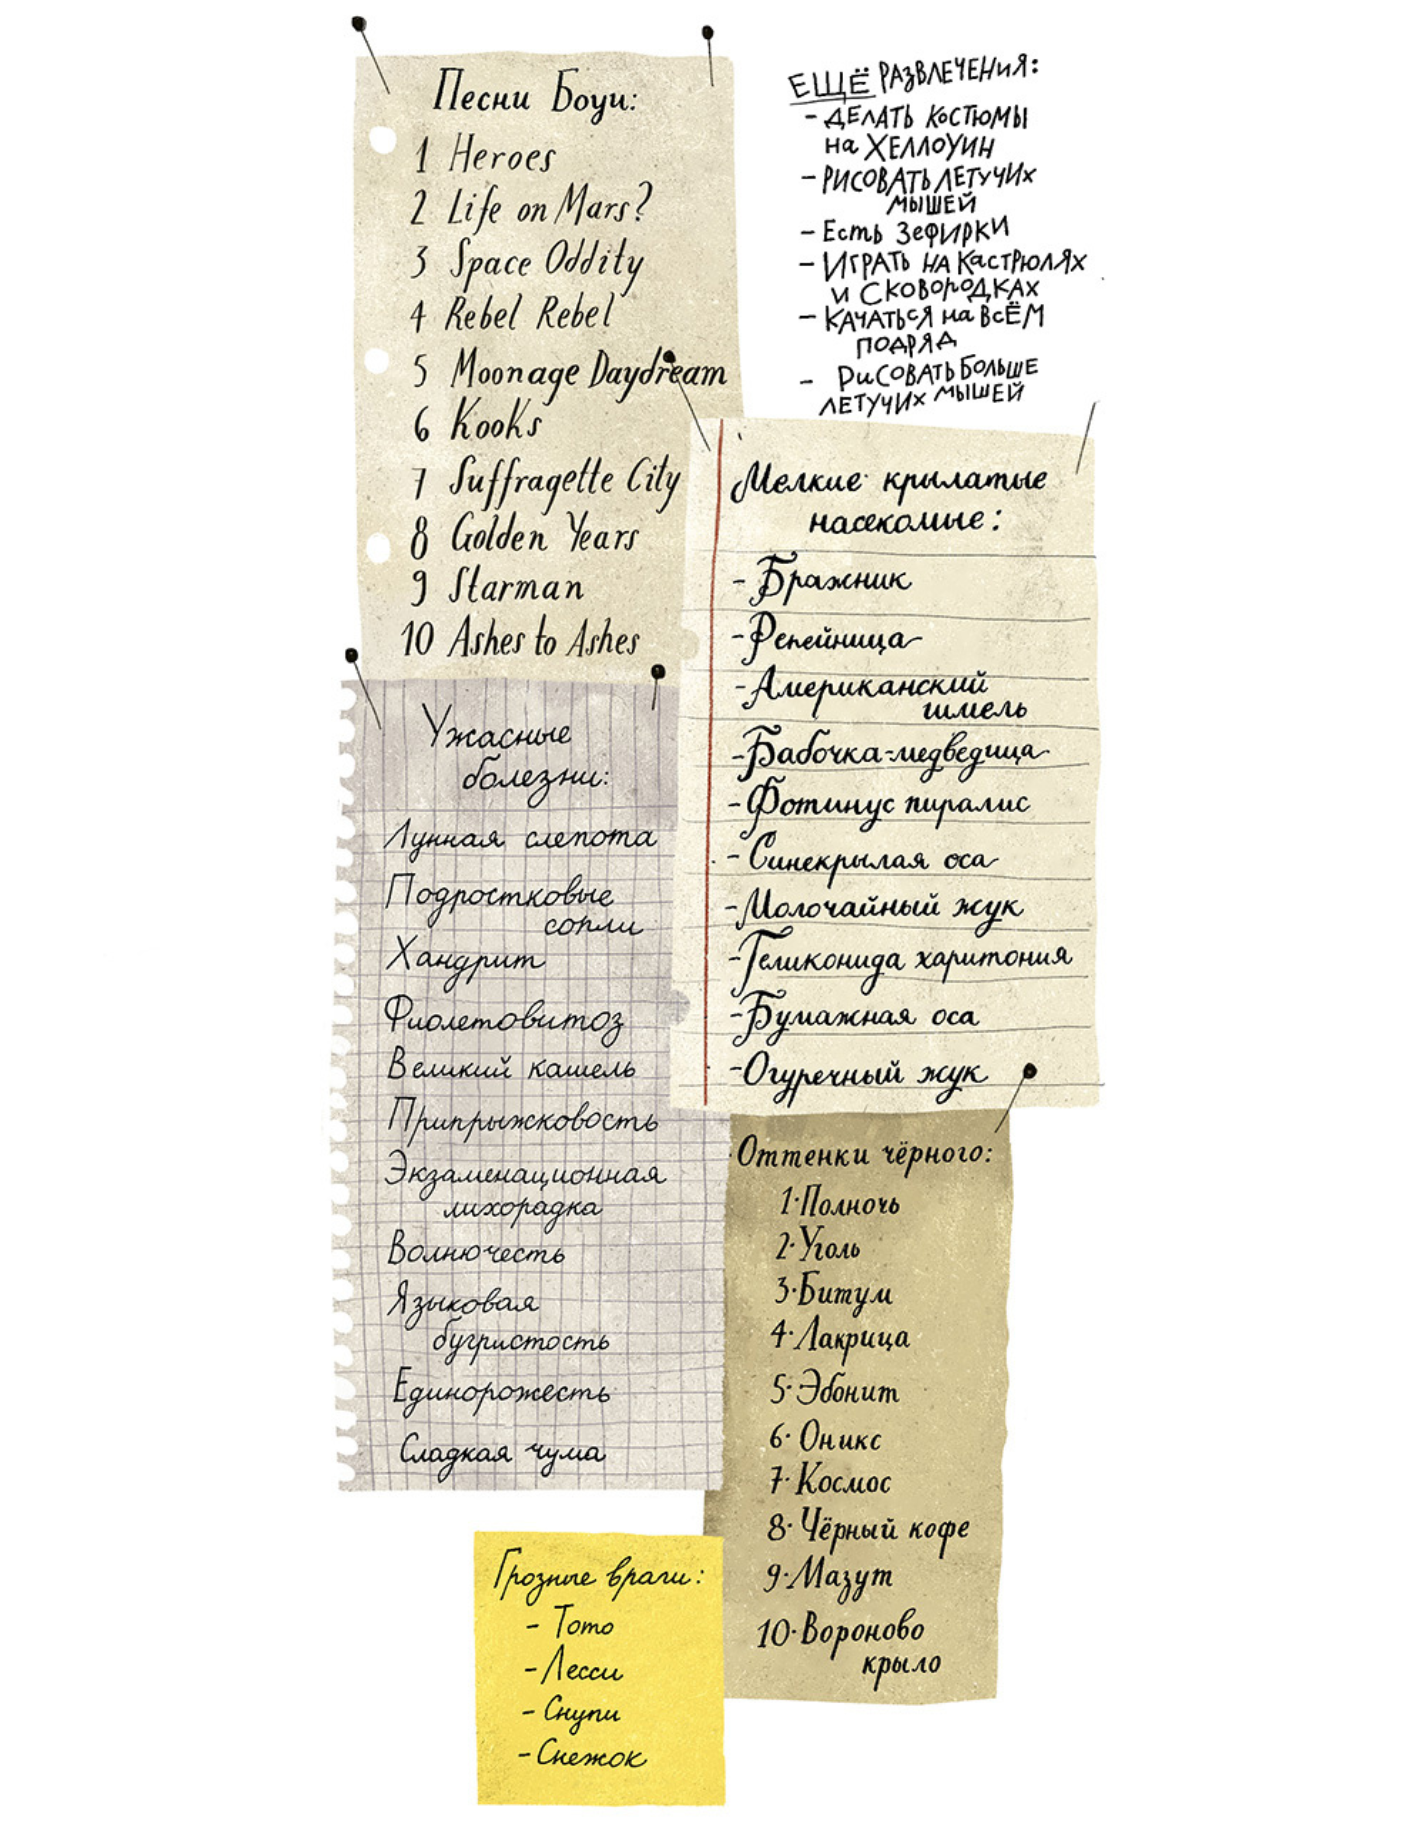 Песни Боуи:
1 Heroes
2 Life on Mars?
3 Space Oddity
4 Rebel Rebel
5 Moonage Daydream
6 Kooks
7 Suffragette City
8 Golden Years
9 Starman
10 Ashes to Ashes
ЕЩЁ РАЗВЛЕЧЕНИЯ:
- ДЕЛАТЬ КОСТЮМЫ
на ХЕЛЛОУИН
- РИСОВАТЬ ЛЕТУЧИХ
МЫШЕЙ
- Есть ЗЕФИРКИ
- ИГРАТЬ НА КАСТРЮЛЯХ
И СКОВОРОДКАХ
- КАЧАТЬСЯ на ВСЁМ
ПОДРЯД
- РИСОВАТЬ БОЛЬШЕ
ЛЕТУЧИХ МЫШЕЙ
Мелкие крылатые
насекомые:
- Бражник
- Репейница
- Американский
шмель
- Бабочка-медведица
- Фотинус пиралис
- Синекрылая оса
- Молочайный жук
- Геликонида харитония
- Бумажная оса
- Огуречный жук
Ужасные
болезни:
Лунная слепота
Подростковые
сопли
Хандрит
Фиолетовитоз
Великий кашель
Припрыжковость
Экзаменационная
лихорадка
Волнючесть
Языковая
бугристость
Единорожесть
Сладкая чума
Оттенки чёрного:
1·Полночь
2·Уголь
3·Битум
4·Лакрица
5·Эбонит
6·Оникс
7·Космос
8·Чёрный кофе
9·Мазут
10·Вороново
крыло
Грозные враги:
- Тото
- Лесси
- Снупи
- Снежок